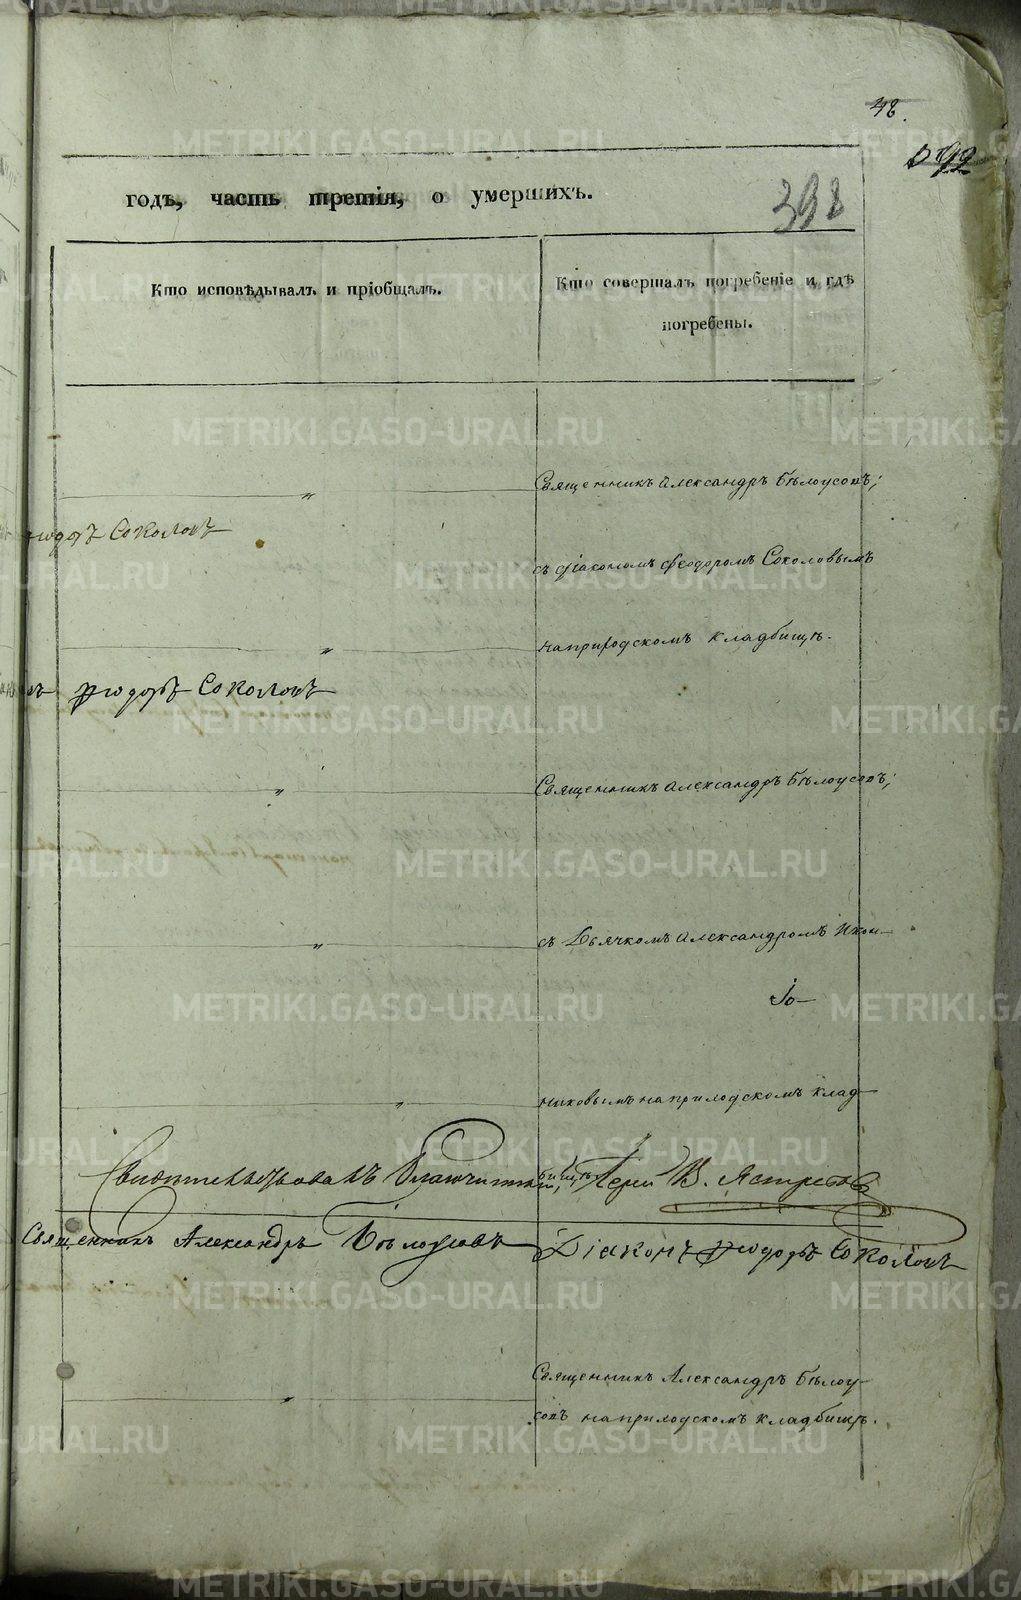 48.
392
398
годъ, часть третія, о умершихъ.
Кто исповѣдывалъ и пріобщалъ.
Кто совершалъ погребеніе и гдѣ
погребены.
Священникъ Александръ Бѣлоусовъ;
Соколовъ
съ діакономъ Феодоромъ Соколовымъ
на приходскомъ кладбищѣ.
Феодоръ Соколовъ
Священникъ Александръ Бѣлоусовъ;
съ Дьячкомъ Александромъ Икон-
никовымъ на приходскомъ клад-
бищѣ,
Свидѣтельствовалъ Благочинный, Іерей В. Ястребовъ
Священникъ Александръ Бѣлоусовъ Діаконъ Феодоръ Соколовъ
Священникъ Александръ Бѣлоу-
совъ на приходскомъ кладбищѣ.
METRIKI.GASO-URAL.RU